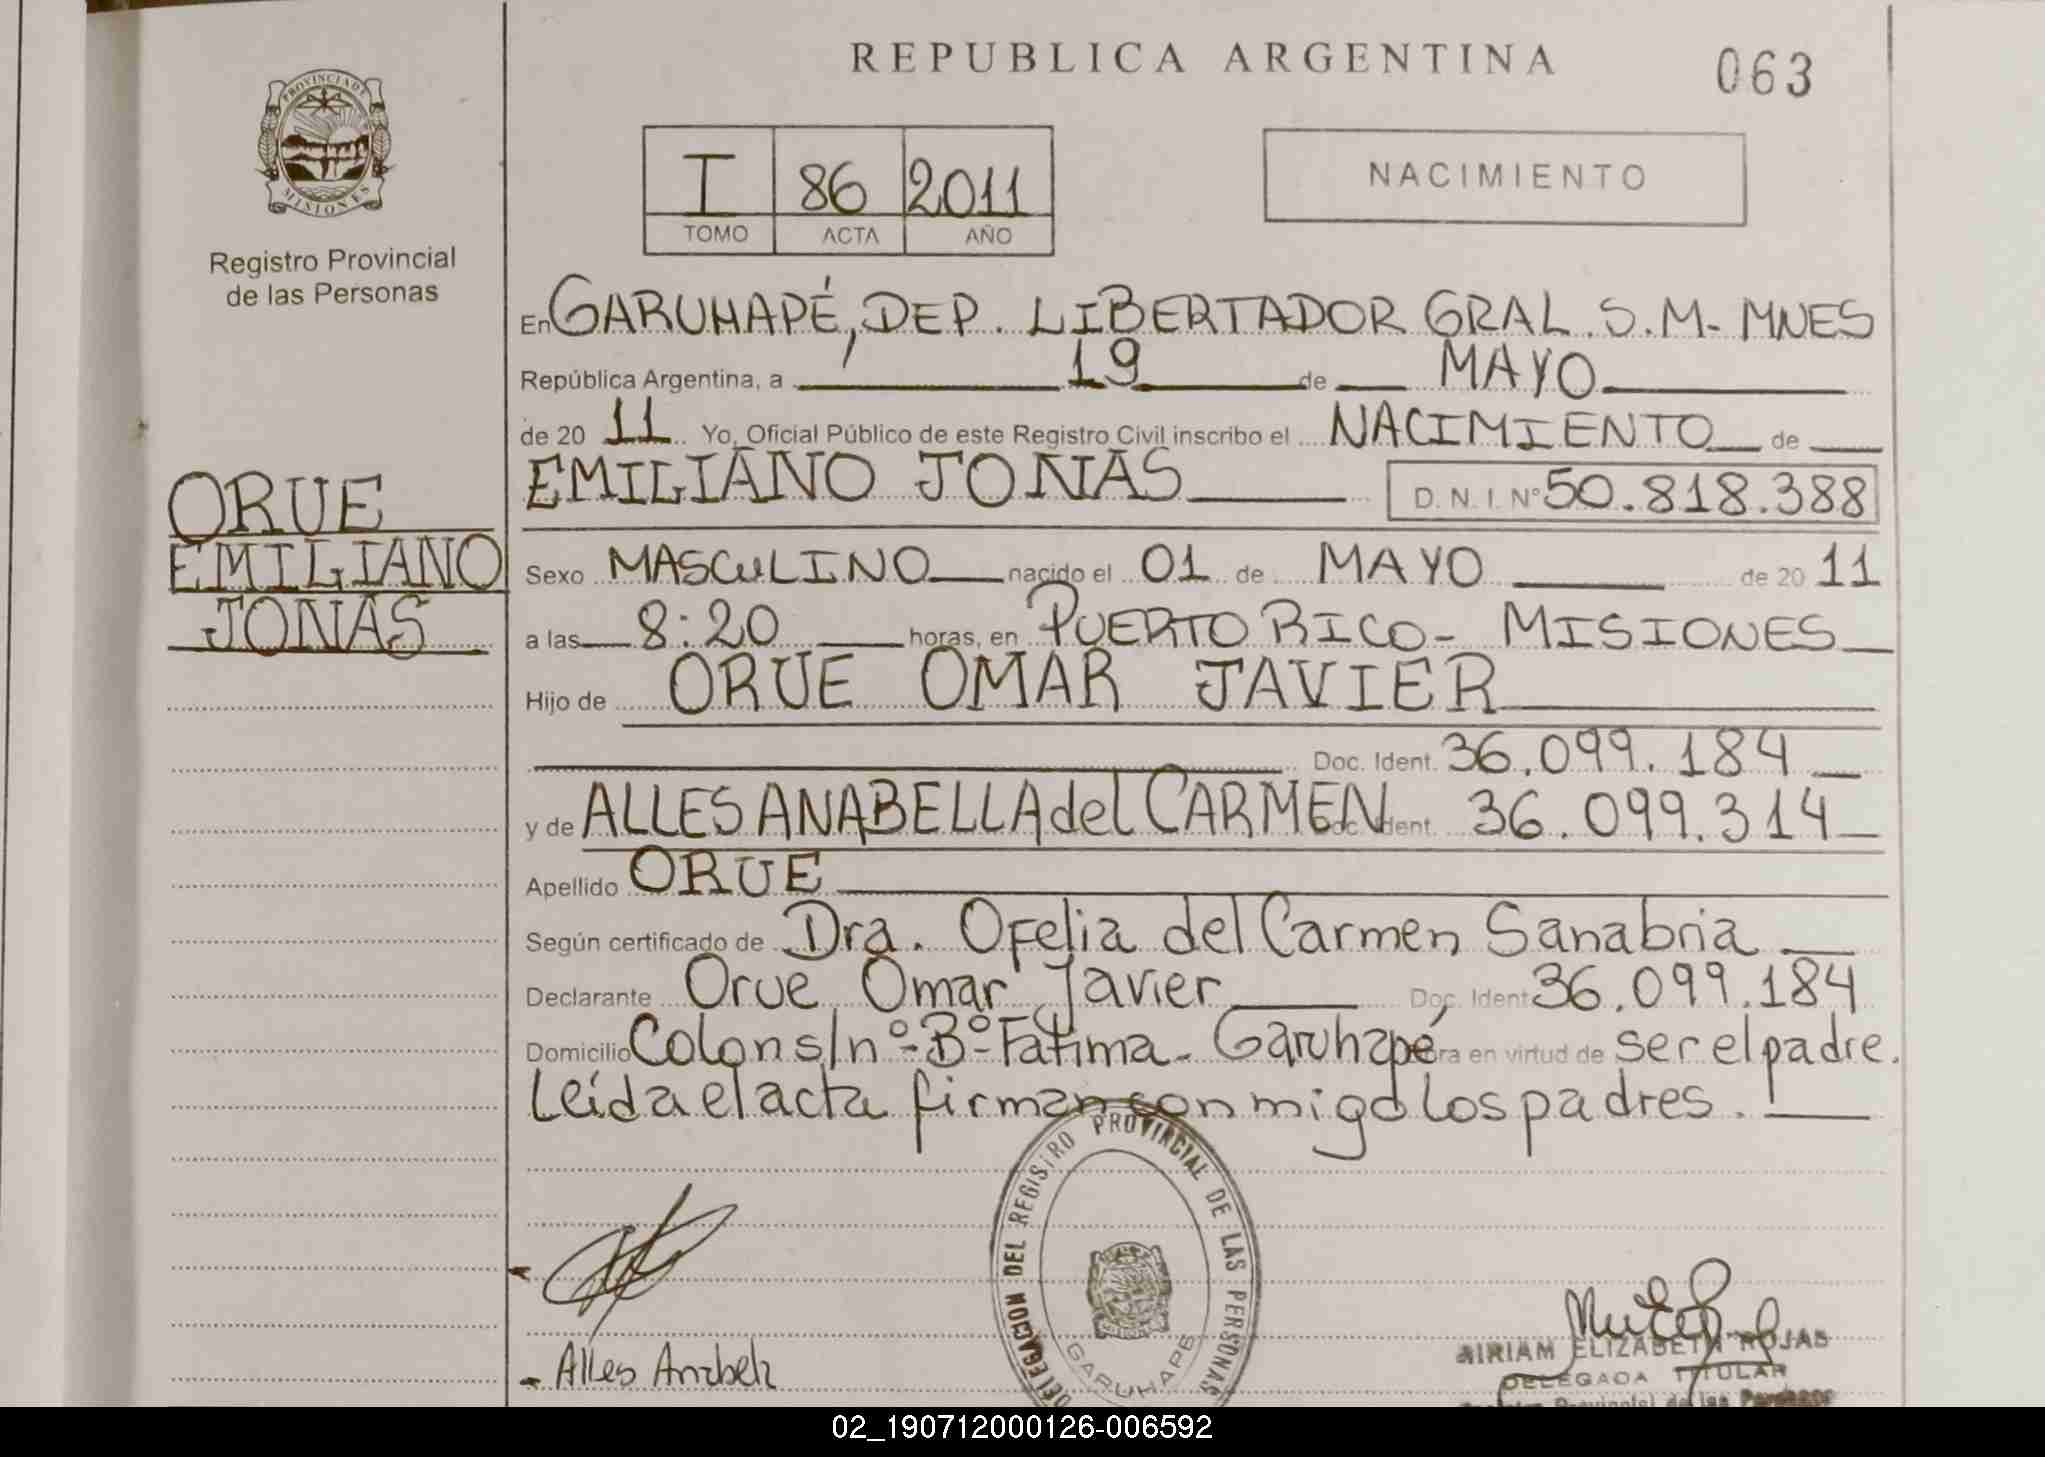 REPUBLICA ARGENTINA
063
PROVINCIA DE
MISIONES
Registro Provincial
de las Personas
I 86 2011
TOMO ACTA AÑO
NACIMIENTO
En GARUHAPÉ, DEP. LIBERTADOR GRAL. S.M- MNES
República Argentina, a 19 de MAYO
de 20 11 Yo, Oficial Público de este Registro Civil inscribo el NACIMIENTO de
EMILIANO JONAS D.N.I. Nº 50.818.388
ORUE
EMILIANO
JONAS
Sexo MASCULINO nacido el 01 de MAYO de 20 11
a las 8:20 horas, en PUERTO RICO- MISIONES
Hijo de ORUE OMAR JAVIER
Doc. Ident. 36.099.184
y de ALLES ANABELLA del CARMEN Doc. Ident. 36.099.314
Apellido ORUE
Según certificado de Dra. Ofelia del Carmen Sanabria
Declarante Orue Omar Javier Doc. Ident 36.099.184
Domicilio Colon s/nº- Bº- Fátima- Garuhapé obra en virtud de ser el padre.
Leída el acta firman conmigo los padres.
DELEGACION DEL REGISTRO PROVINCIAL DE LAS PERSONAS
GARUHAPE
- Alles Anabela
MIRIAM ELIZABETH ROJAS
DELEGADA TITULAR
Registro Provincial de las Personas
02_190712000126-006592